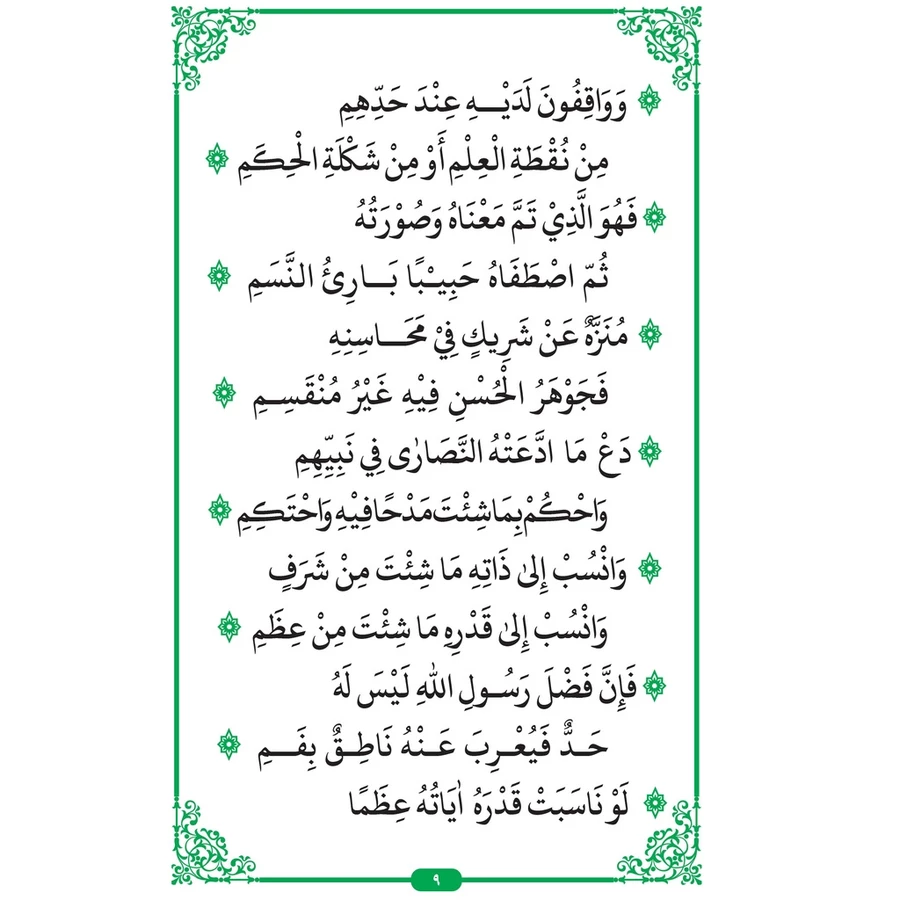 وَوَاقِفُونَ لَدَيْهِ عِنْدَ حَدِّهِمِ
مِنْ نُقْطَةِ الْعِلْمِ أَوْ مِنْ شَكْلَةِ الْحِكَمِ
فَهُوَ الَّذِيْ تَمَّ مَعْنَاهُ وَصُوْرَتُهُ
ثُمّ اصْطَفَاهُ حَبِيْبًا بَارِئُ النَّسَمِ
مُنَزَّهٌ عَنْ شَرِيكٍ فِيْ مَحَاسِنِهِ
فَجَوْهَرُ الْحُسْنِ فِيْهِ غَيْرُ مُنْقَسِمِ
دَعْ مَا ادَّعَتْهُ النَّصَارٰى فِي نَبِيِّهِمِ
وَاحْكُمْ بِمَا شِئْتَ مَدْحًا فِيْهِ وَاحْتَكِمِ
وَانْسُبْ إِلىٰ ذَاتِهِ مَا شِئْتَ مِنْ شَرَفٍ
وَانْسُبْ إِلىٰ قَدْرِهِ مَا شِئْتَ مِنْ عِظَمِ
فَإِنَّ فَضْلَ رَسُولِ اللهِ لَيْسَ لَهُ
حَدٌّ فَيُعْرِبَ عَنْهُ نَاطِقٌ بِفَمِ
لَوْ نَاسَبَتْ قَدْرَهُ اٰيَاتُهُ عِظَمًا
٩